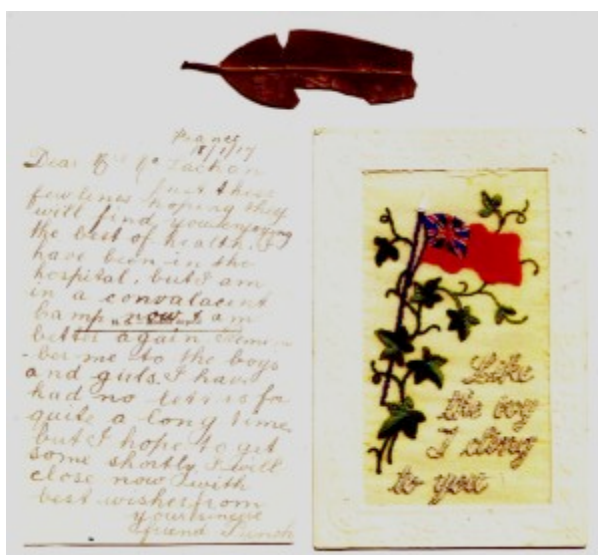 France
18/1/17
Dear Mrs Mc
few lines just these
hoping they
will find you enjoying
the best of health. I
have been in the
hospital, but I am
in a convalacent
camp now I am
better again remem
-ber me to the boys
and girls. I have
had no letters for
quite a long time
but I hope to get
some shortly. I will
close now with
best wishes from
your sincere
friend
Like
the ivy
I cling
to you